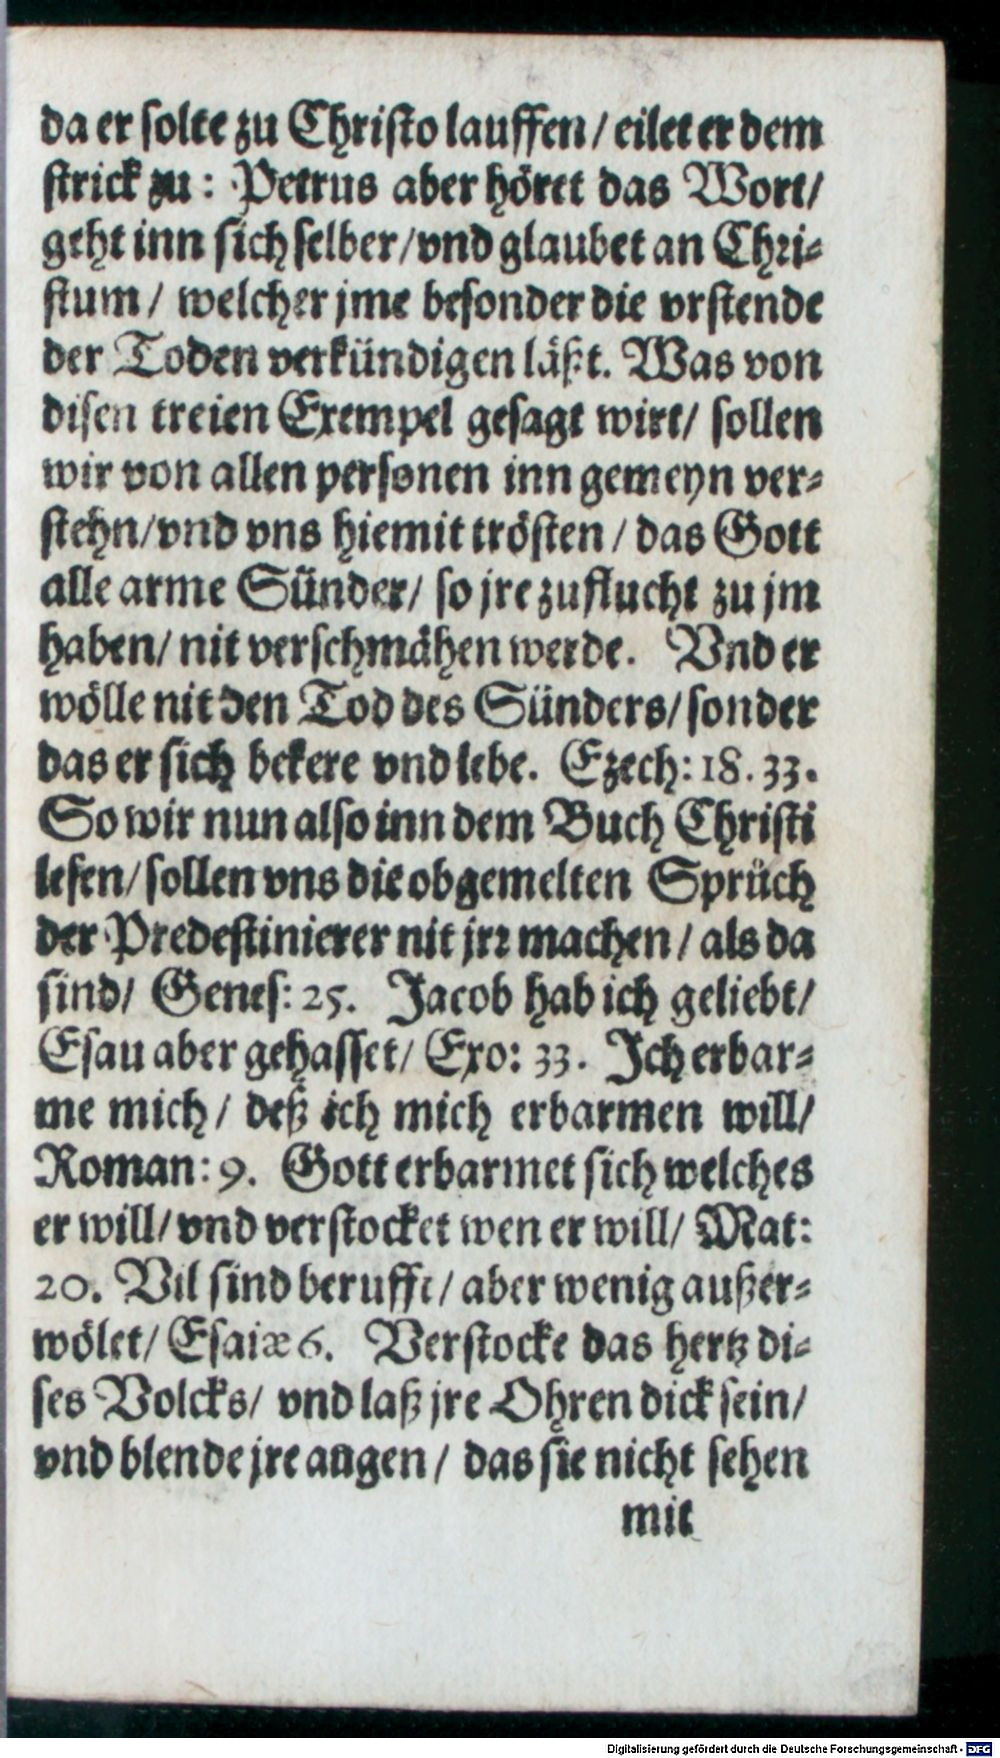 da er solte zu Christo lauffen / eilet er dem
strick zu : Petrus aber hört das Wort /
geht inn sich selber / vnd glaubet an Chri-
stum / welcher jme besonder die vrstende
der Toden verkündigen läßt. Was von
disen treien Exempel gesagt wirt / sollen
wir von allen personen inn gemeyn ver-
stehn / vnd vns hiemit trösten / das Gott
alle arme Sünder / so jre zuflucht zu jm
haben / nit verschmähen werde. Vnd er
wölle nit den Tod des Sünders / sonder
das er sich bekere vnd lebe. Ezech: 18. 33.
So wir nun also inn dem Buch Christi
lesen / sollen vns die obgemelten Sprüch
der Predestinierer nit jrr machen / als da
sind / Genes: 25. Jacob hab ich geliebt /
Esau aber gehasset / Exo: 33. Jch erbar-
me mich / deß ich mich erbarmen will /
Roman: 9. Gott erbarmet sich welches
er will / vnd verstocket wen er will / Mat:
20. Vil sind berufft / aber wenig außer-
wölet / Esaiæ 6. Verstocke das hertz di-
ses Volcks / vnd laß jre Ohren dick sein /
vnd blende jre augen / das sie nicht sehen
mit
Digitalisierung gefördert durch die Deutsche Forschungsgemeinschaft - DFG